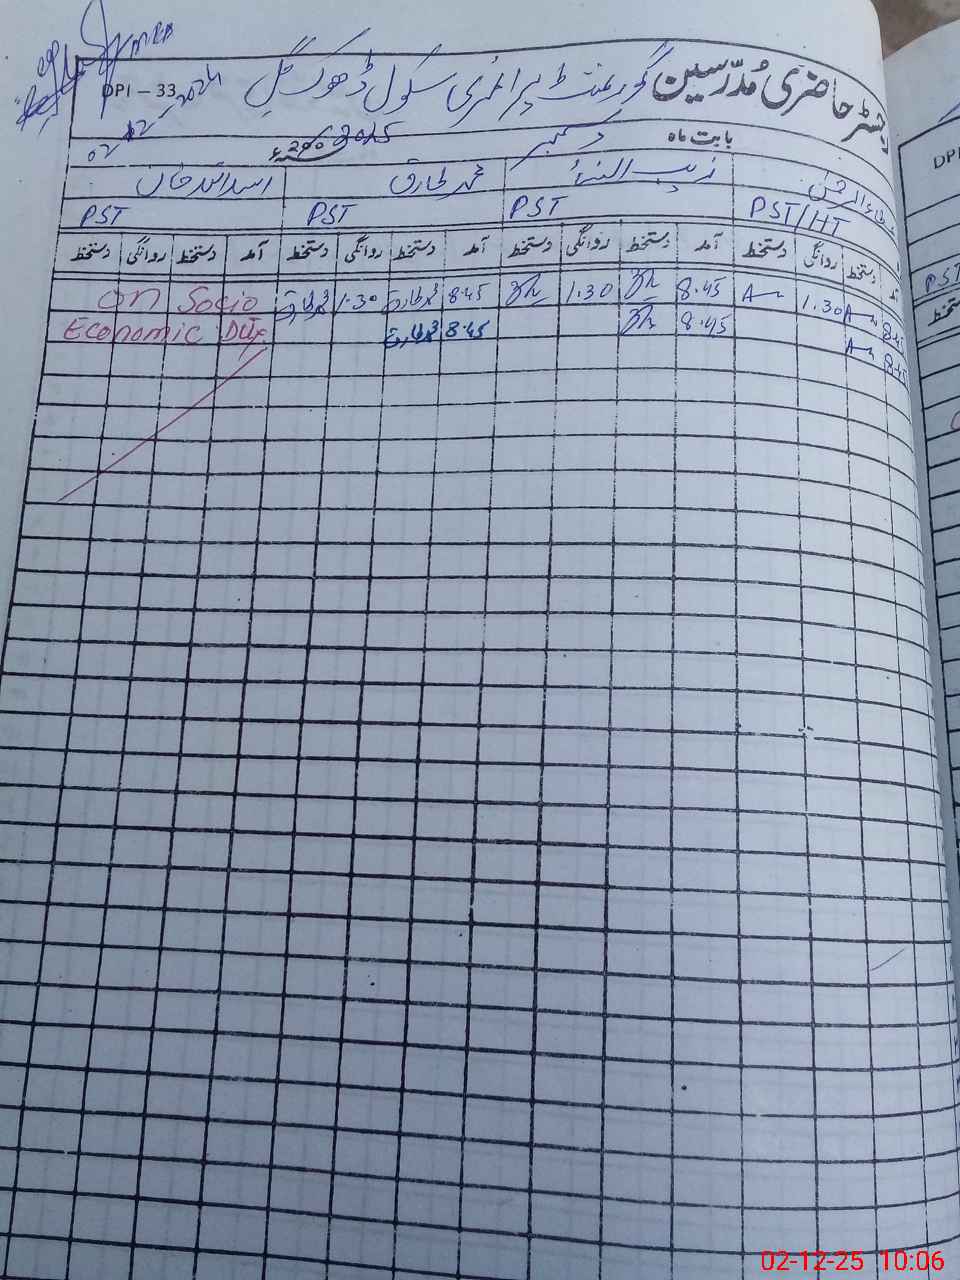 DPI – 33
رجسٹر حاضری مُدرّسین گورنمنٹ پرائمری سکول ڈھوک گل
02 12 2024
بابت ماہ دسمبر 2015
عطاء الرحمٰن زیب النساء محمد طارق اسد اللہ خان
PST/HT PST PST PST
آمد دستخط روانگی دستخط آمد دستخط روانگی دستخط آمد دستخط روانگی دستخط آمد دستخط روانگی دستخط
8:45 1:30 8:45 1.30 8:45 محمد طارق 1:30 محمد طارق on Socio
8:45 8:45 8:45 محمد طارق Economic Duty
DPI
PST
دستخط
02-12-25 10:06